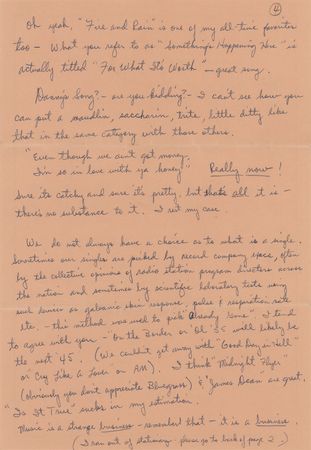 4
Oh yeah, "Fire and Rain" is one of my all-time favorites
too - What you refer to as "Something's Happening Here" is
actually titled "For What It's Worth" - great song.
Danny's Song? - are you kidding? - I can't see how you
can put a maudlin, saccharin, trite, little ditty like
that in the same category with those others.
"Even though we ain't got money,
I'm so in love with ya honey" Really now!
Sure its catchy and sure it's pretty but that's all it is -
there's no substance to it. I rest my case.
We do not always have a choice as to what is a single.
Sometimes our singles are picked by record company execs, often
by the collective opinions of radio station program directors across
the nation and sometimes by scientific laboratory tests using
such devices as galvanic skin response, pulse & respiration rate
etc. - this method was used to pick "Already Gone". I tend
to agree with you - "On the Border" or "Ol' 55" will likely be
the next '45. (We couldn't get away with "Good Day in Hell"
or Cry Like a Lover on AM). I think "Midnight Flyer"
(obviously you don't appreciate Bluegrass) & "James Dean" are great.
"Is It True" sucks in my estimation.
Music is a strange business - remember that - it is a business.
(I ran out of stationery - please go to back of page 2.)